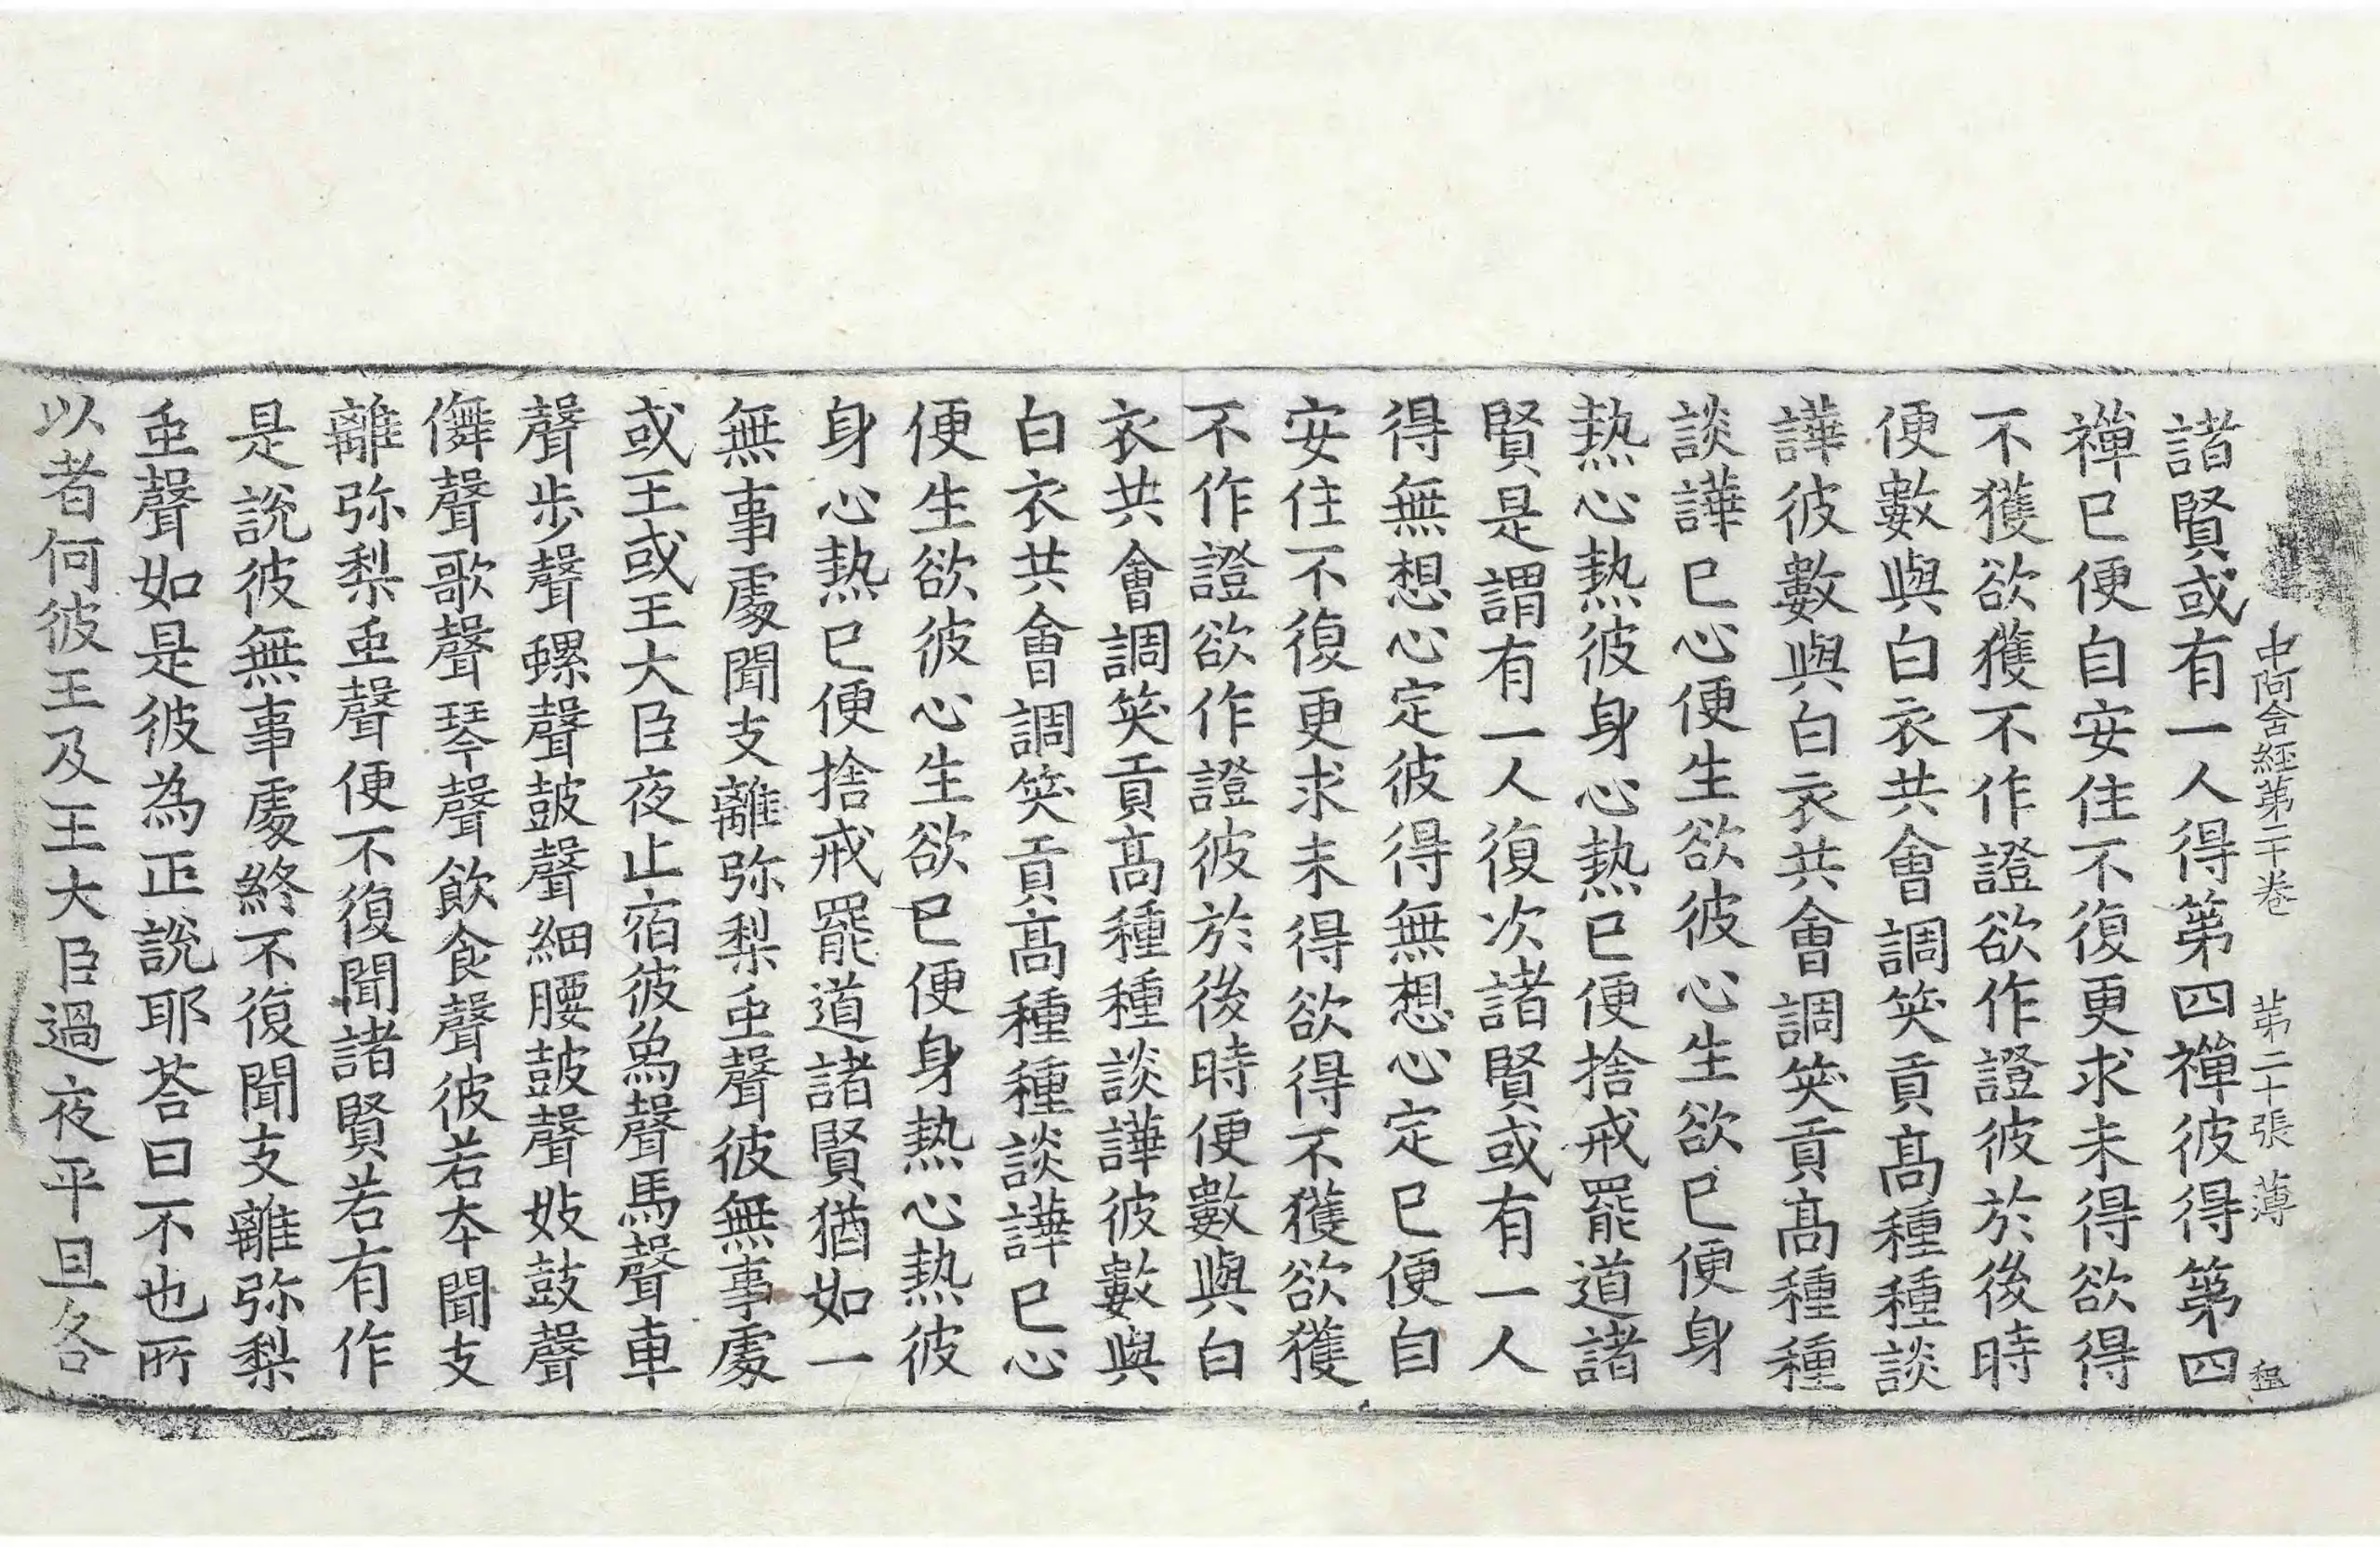 中阿含經第二十卷 第二十張 薄
諸賢或有一人得第四禪彼得第四
禪已便自安住不復更求未得欲得
不獲欲獲不作證欲作證彼於後時
便數與白衣共會調笑貢高種種談
譁彼數與白衣共會調笑貢高種種
談譁已心便生欲彼心生欲已便身
熱心熱彼身心熱已便捨戒罷道諸
賢是謂有一人復次諸賢或有一人
得無想心定彼得無想心定已便自
安住不復更求未得欲得不獲欲獲
不作證欲作證彼於後時便數與白
衣共會調笑貢高種種談譁彼數與
白衣共會調笑貢高種種談譁已心
便生欲彼心生欲已便身熱心熱彼
身心熱已便捨戒罷道諸賢猶如一
無事處聞支離弥梨虫聲彼無事處
或王或王大臣夜止宿彼象聲馬聲車
聲步聲螺聲鼓聲細腰鼓聲妓鼓聲
儛聲歌聲琴聲飲食聲彼若本聞支
離弥梨虫聲便不復聞諸賢若有作
是說彼無事處終不復聞支離弥梨
虫聲如是彼為正說耶荅曰不也所
以者何彼王及王大臣過夜平旦各